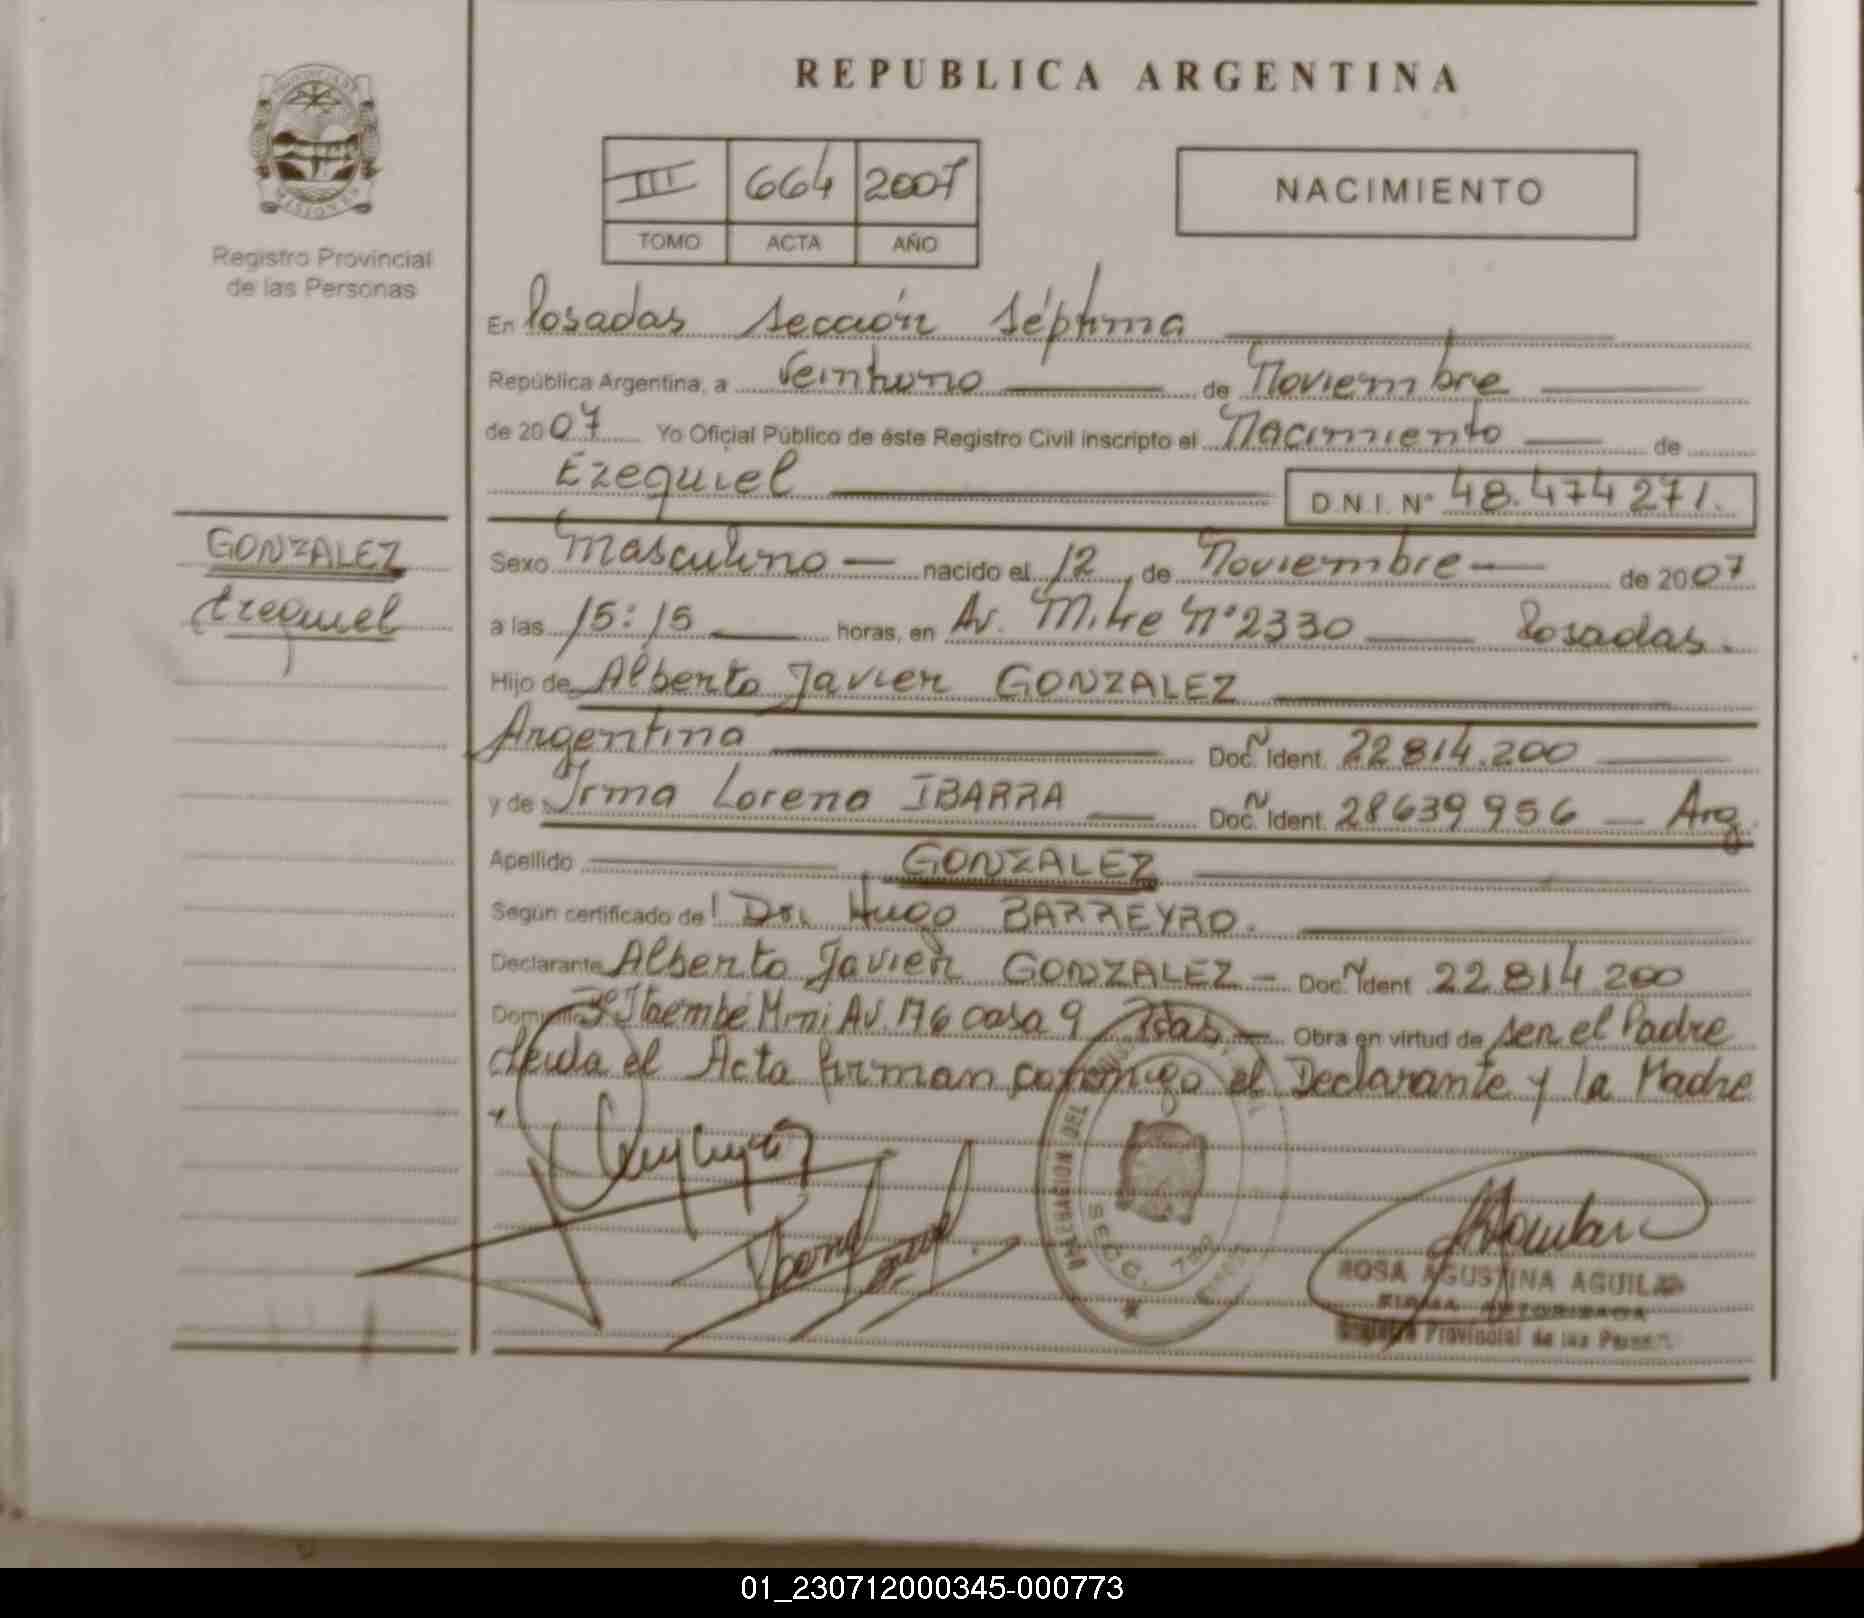 REPUBLICA ARGENTINA
PROVINCIA DE MISIONES
Registro Provincial
de las Personas
III 664 2007
TOMO ACTA AÑO
NACIMIENTO
En Posadas Sección Séptima
República Argentina, a Veintiuno de Noviembre
de 2007 Yo Oficial Público de éste Registro Civil inscripto el Nacimiento de
Ezequiel D.N.I. N° 48.474 271.
GONZALEZ
Ezequiel
Sexo Masculino nacido el 12 de Noviembre de 2007
a las 15:15 horas, en Av. Mitre N° 2330 Posadas.
Hijo de Alberto Javier GONZALEZ
Argentina Doc. N Ident. 22 814.200
y de Irma Lorena IBARRA Doc. N Ident. 28639956 Arg.
Apellido GONZALEZ
Según certificado de Dr. Hugo BARREYRO.
Declarante Alberto Javier GONZALEZ - Doc. N Ident 22 814 200
Domicilio Itaembé Mini Av. 176 casa 9 Pdas. Obra en virtud de ser el Padre
Leída el Acta firman conmigo el Declarante y la Madre
SECC. 7ma
ROSA AGUSTINA AGUILAR
FIRMA AUTORIZADA
Registro Provincial de las Personas
01_230712000345-000773